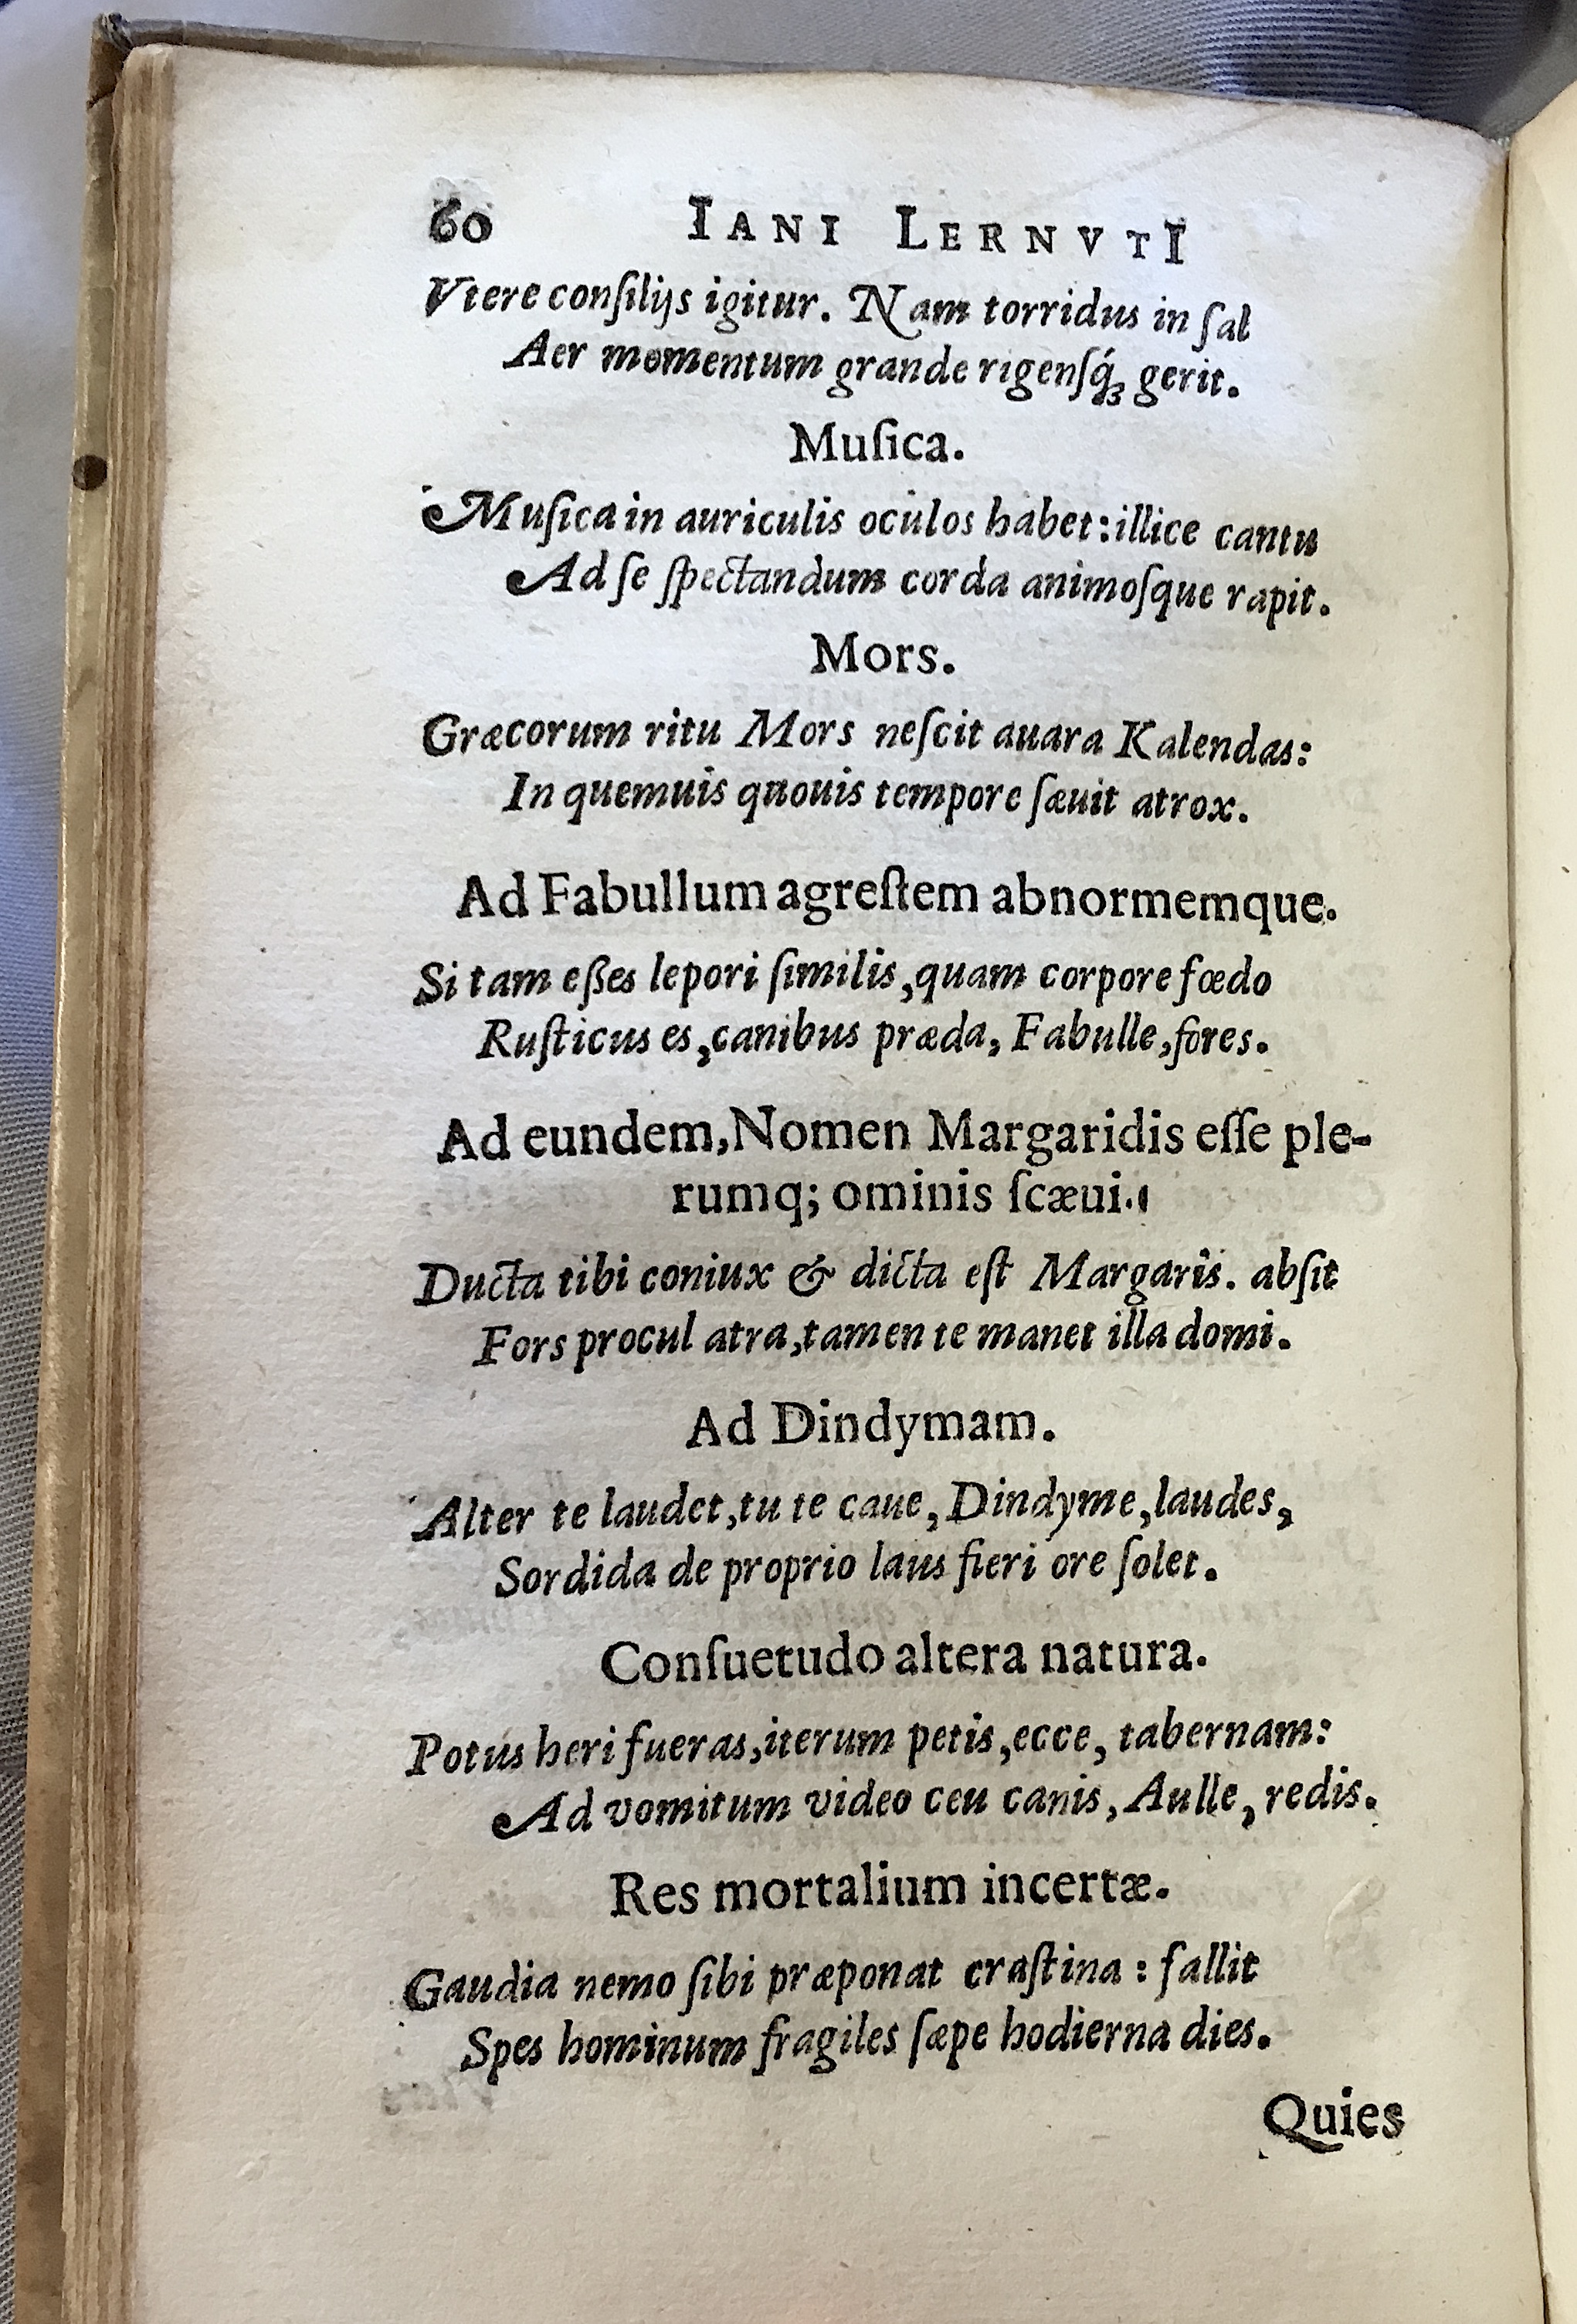 60 IANI LERNVTI
Vtere conſilijs igitur. Nam torridus in ſal
Aer momentum grande rigenſq́ꝫ gerit.
Muſica.
Muſica in auriculis oculos habet: illice cantu
Ad ſe ſpectandum corda animoſque rapit.
Mors.
Græcorum ritu Mors neſcit auara Kalendas:
In quemuis quouis tempore ſæuit atrox.
Ad Fabullum agreſtem abnormemque.
Si tam eßes lepori ſimilis, quam corpore fœdo
Ruſticus es, canibus præda, Fabulle, fores.
Ad eundem, Nomen Margaridis eſſe ple-
rumq; ominis ſcæui.
Ducta tibi coniux & dicta eſt Margaris. abſit
Fors procul atra, tamen te manet illa domi.
Ad Dindymam.
Alter te laudet, tu te caue, Dindyme, laudes,
Sordida de proprio laus fieri ore ſolet.
Conſuetudo altera natura.
Potus heri fueras, iterum petis, ecce, tabernam:
Ad vomitum video ceu canis, Aulle, redis.
Res mortalium incertæ.
Gaudia nemo ſibi præponat craſtina: fallit
Spes hominum fragiles ſæpe hodierna dies.
Quies